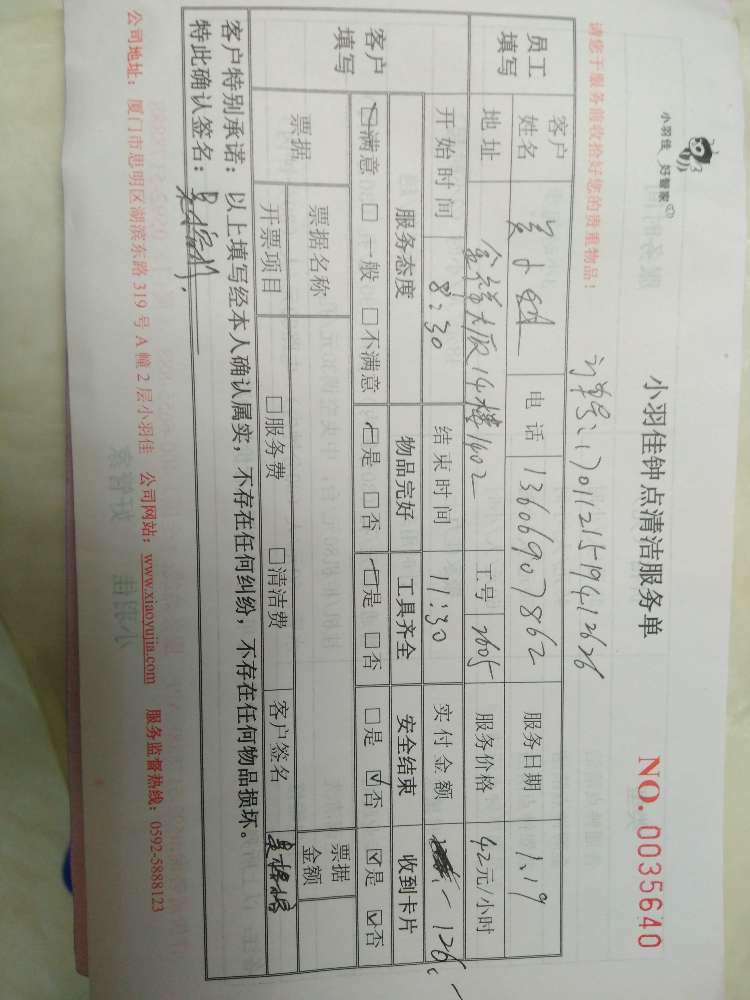 小羽佳 好智家
小羽佳钟点清洁服务单
NO. 0035640
请您于服务前收拾好您的贵重物品！
订单号：17011215194412626
员工填写
客户姓名
电话 13606907862
服务日期 1.19
地址
14楼1402
工号 2605
服务价格 42元/小时
开始时间 8:30
结束时间 11:30
实付金额 126.-
客户填写
服务态度 物品完好 工具齐全 安全结束 收到卡片
☑满意 □一般 □不满意 ☑是 □否 ☑是 □否 □是 ☑否 ☑是 ☑否
票据 票据名称 票据金额
开票项目 □服务费 □清洁费 客户签名
客户特别承诺：以上填写经本人确认属实，不存在任何纠纷，不存在任何物品损坏。
特此确认签名：
公司地址：厦门市思明区湖滨东路 319 号 A 幢 2 层小羽佳 公司网站：www.xiaoyujia.com 服务监督热线：0592-5888123